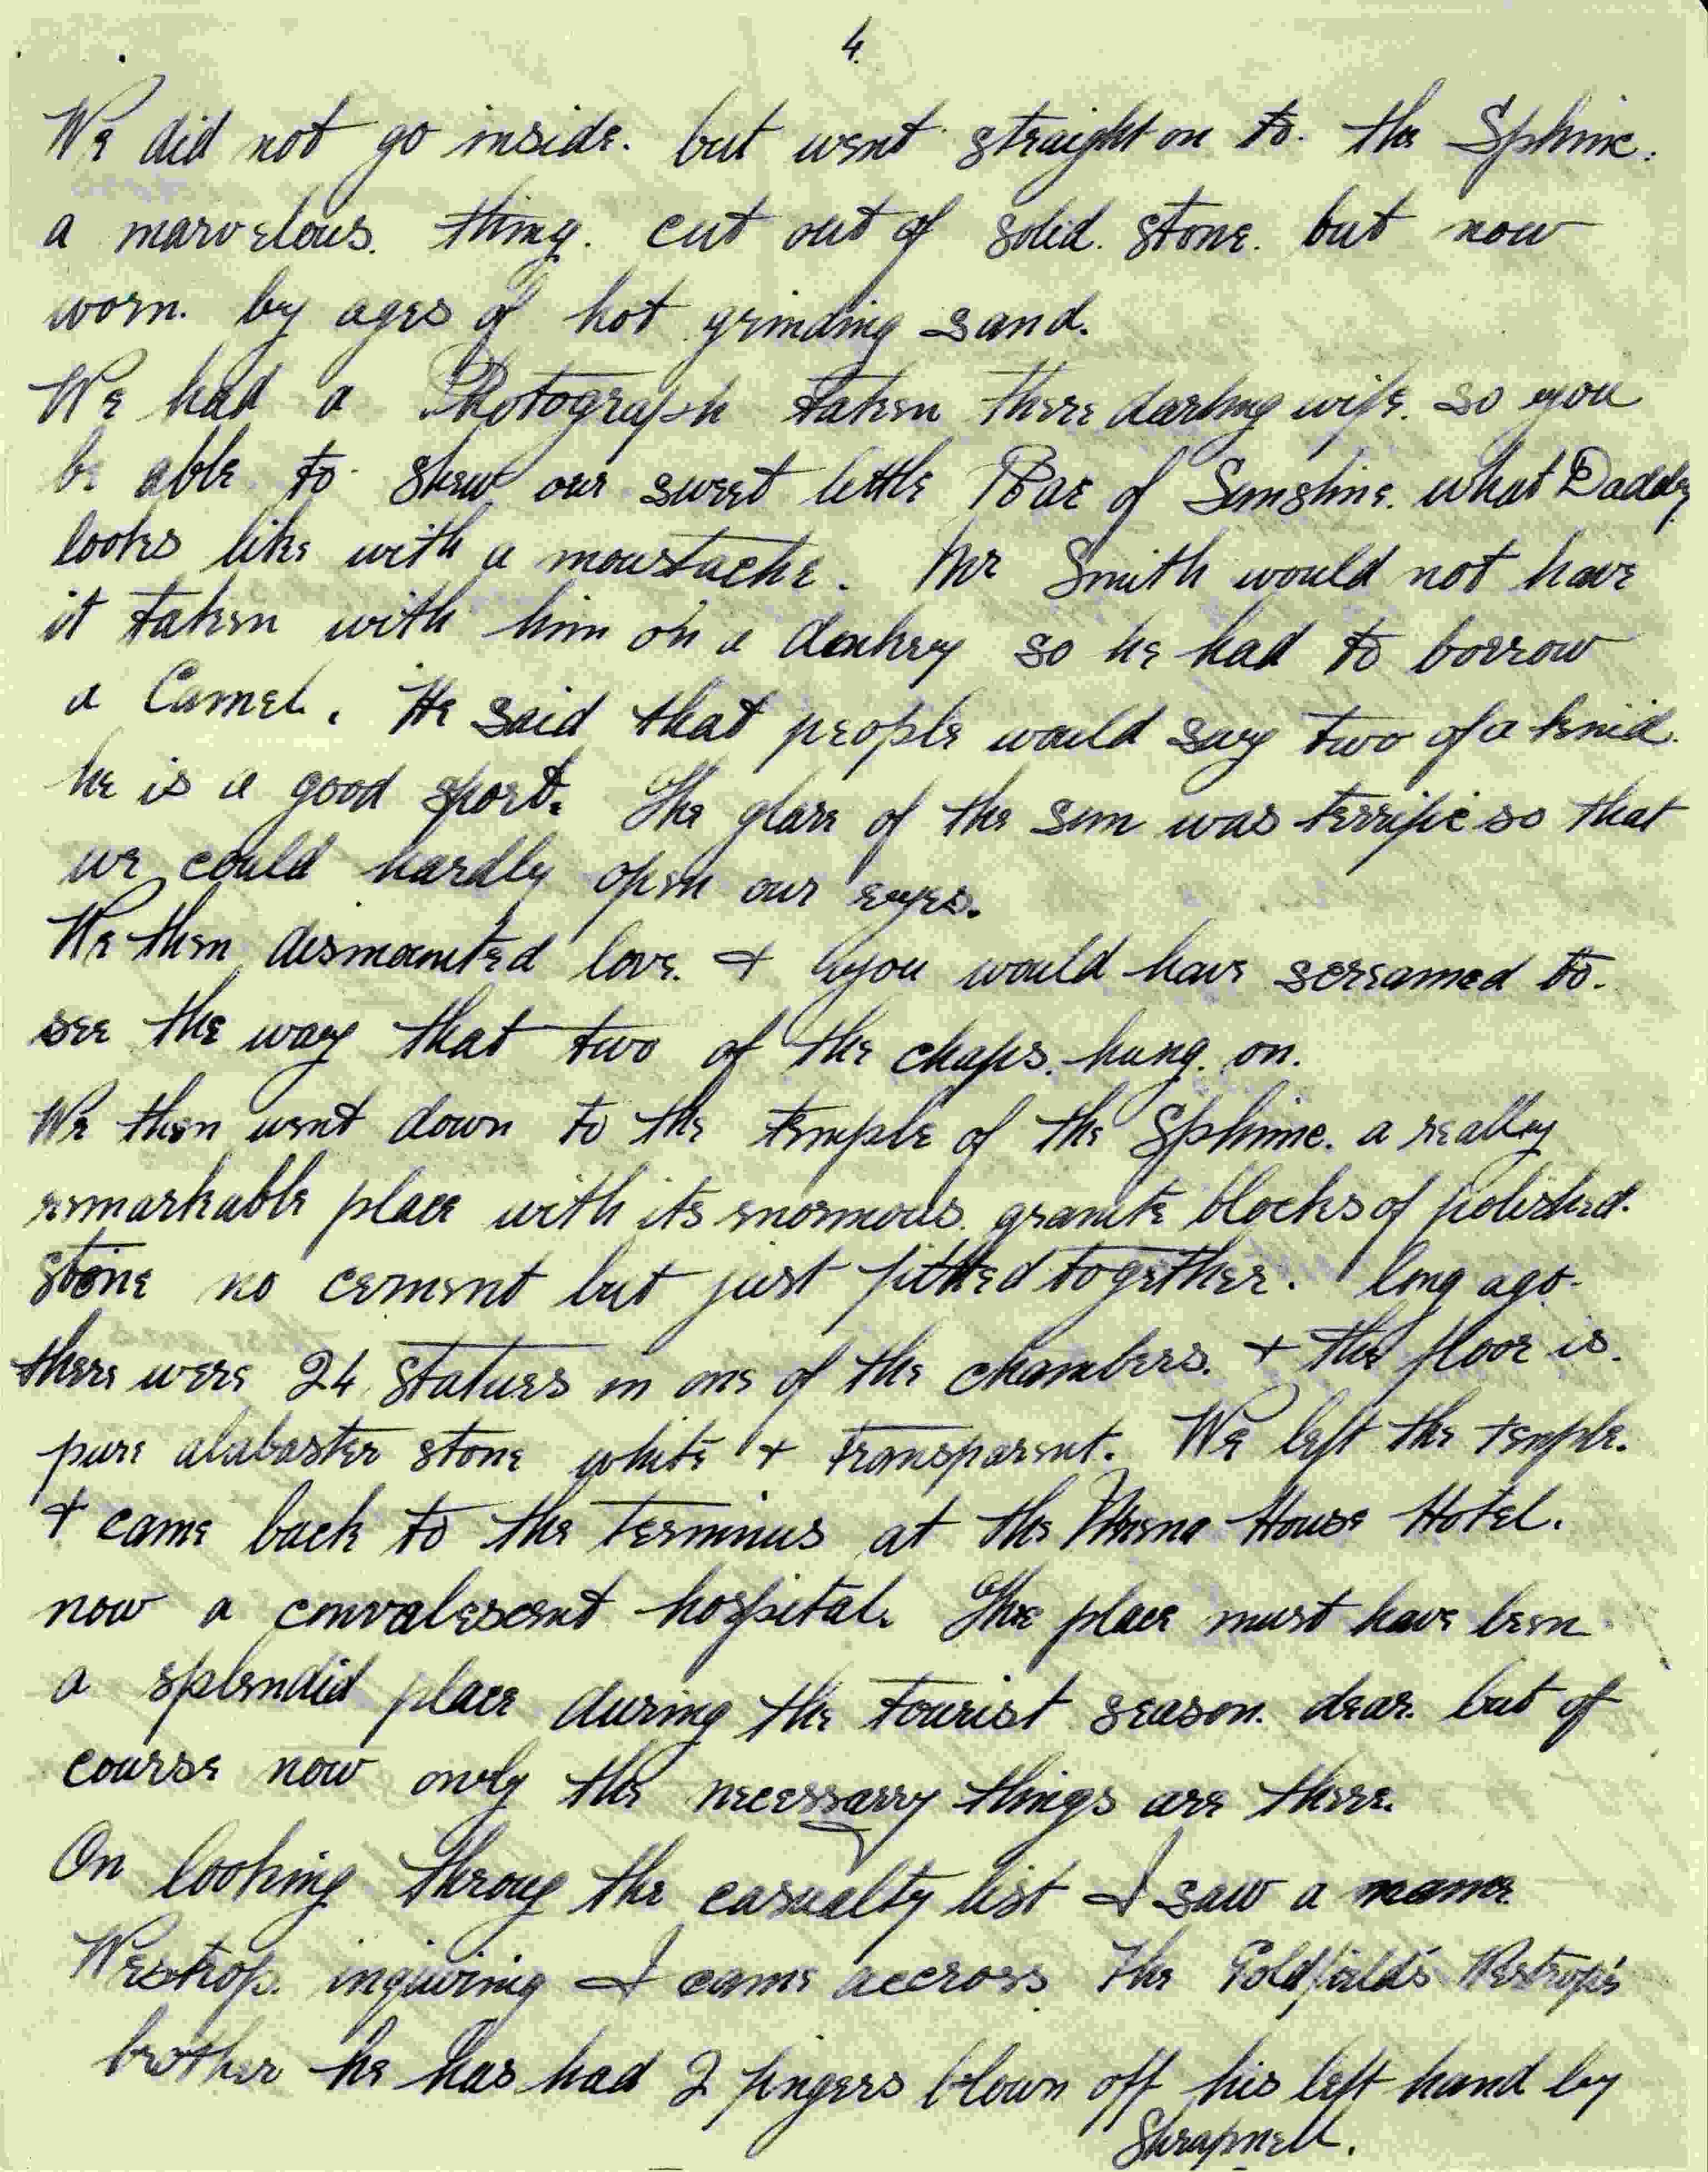 4.
We did not go inside. but went straight on to. the Sphinx.
a marvelous. thing. cut out of solid. stone. but now
worn. by ages of hot grinding sand.
We had a Photograph taken there darling wife. so you
be able to shew our sweet little Rae of Sunshine. what Daddy
looks like with a moustache. Mr Smith would not have
it taken with him on a donkey so he had to borrow
a Camel. He said that people would say two of a knid.
he is a good sport. The glare of the sun was terrific so that
we could hardly open our eyes.
We then dismounted love. + you would have screamed to.
see the way that two of the chaps. hung. on.
We then went down to the temple of the Sphinx. a really
remarkable place with its enormous. granite blocks of polished.
stone no cement but just fitted together. long ago.
there were 24 statues in one of the chambers. + the floor is.
pure alabaster stone white + transparent. We left the temple.
+ came back to the terminus at the Mena House Hotel.
now a convalescent hospital. The place must have been
a splendid place during the tourist season. dear. but of
course now only the necessarry things are there.
On looking throug the casualty list I saw a name
Westrop. inquiring I came accross. the Goldfields Westrop's
brother he has had 2 fingers blown off his left hand by
Shrapnell.